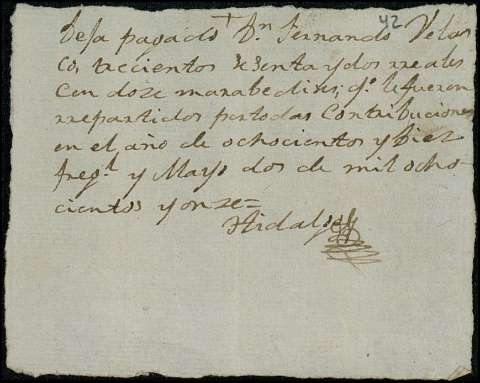 42
†
Deja pagado Dn. Fernando Velas
co, trecientos sesenta y dos rreales
con doze marabedises; qe. le fueron
rrepartidos por todas contribuciones
en el año de ochocientos y diez
freg.l y Mayo dos de mil ocho-
cientos y onze=
Hidalgo